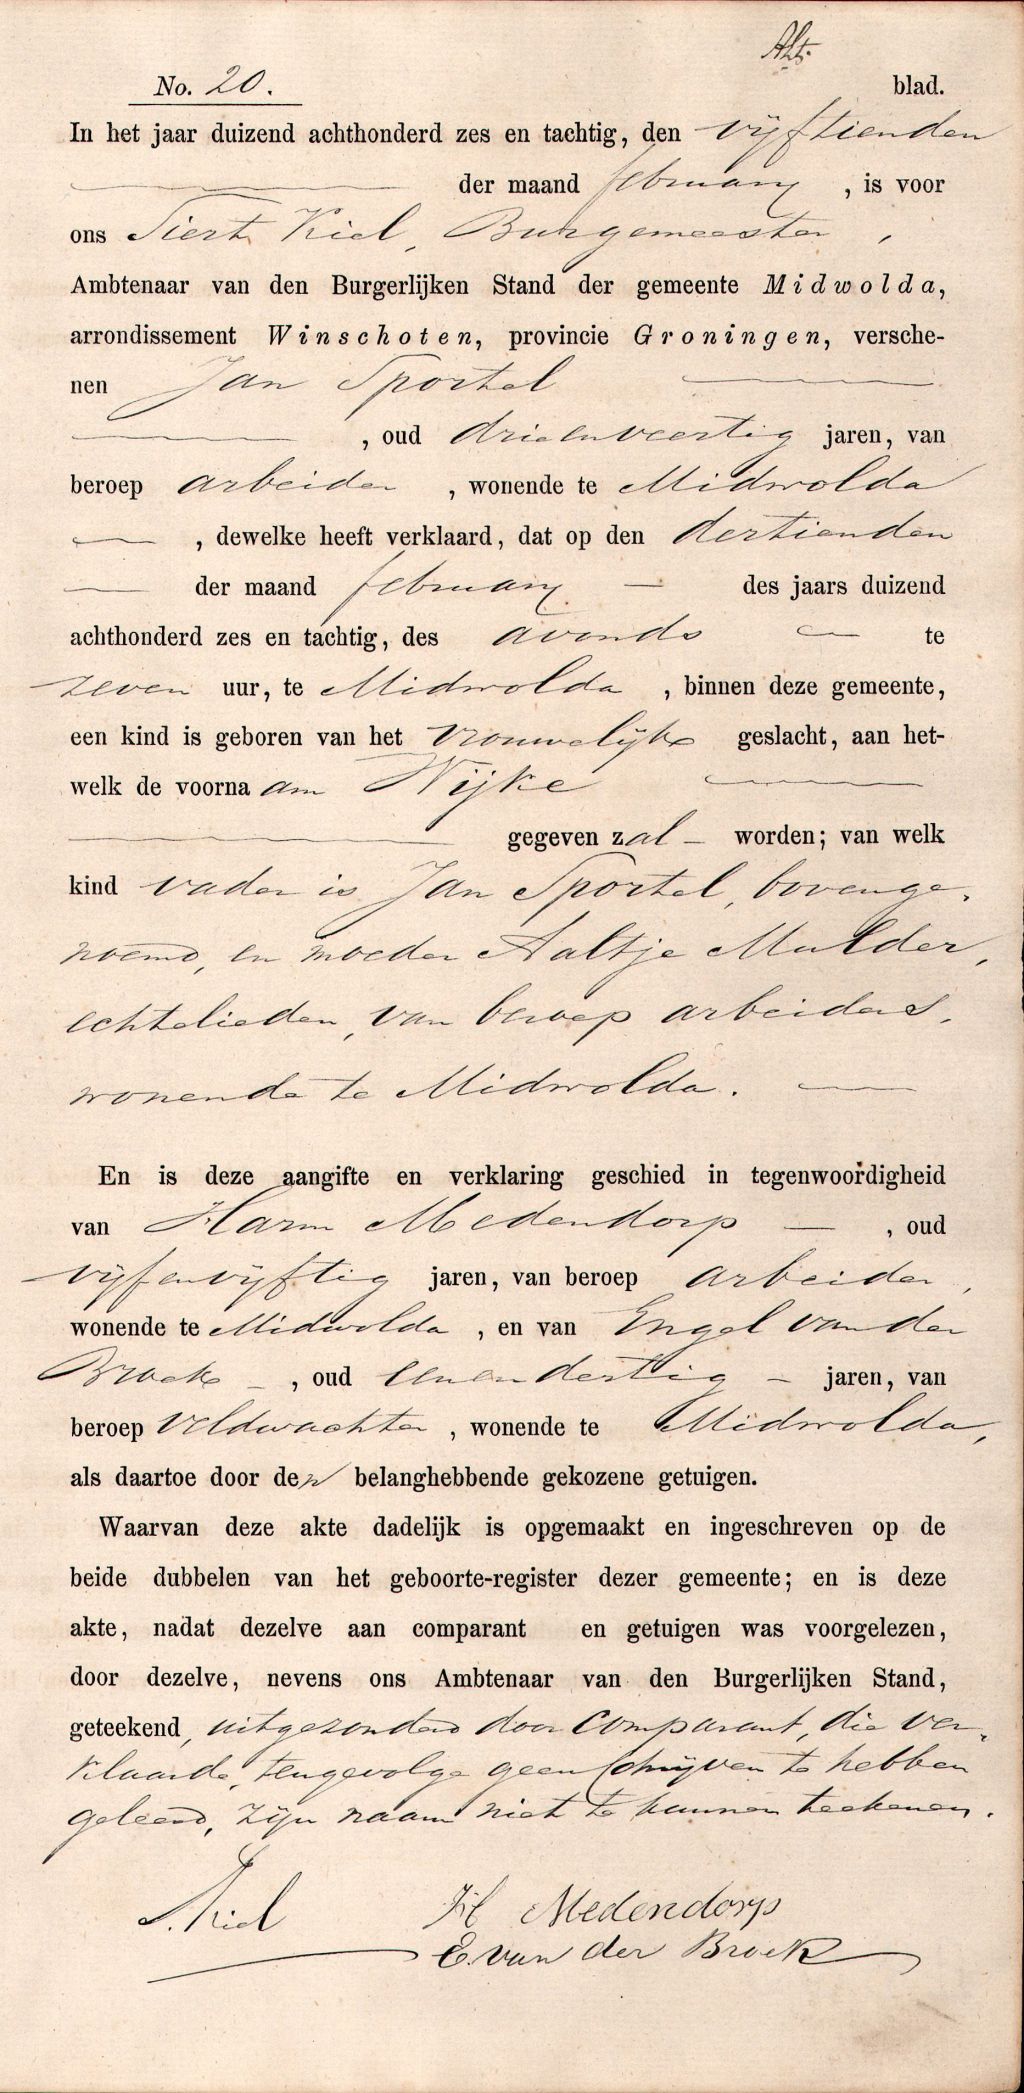 Aht.
No. 20. blad.
In het jaar duizend achthonderd zes en tachtig, den vijftienden
der maand februarij, is voor
ons Siert Kiel, Burgemeester,
Ambtenaar van den Burgerlijken Stand der gemeente Midwolda,
arrondissement Winschoten, provincie Groningen, versche-
nen Jan Sportel
, oud drieenveertig jaren, van
beroep arbeider, wonende te Midwolda
, dewelke heeft verklaard, dat op den dertienden
der maand februarij des jaars duizend
achthonderd zes en tachtig, des avonds te
zeven uur, te Midwolda, binnen deze gemeente,
een kind is geboren van het vrouwelijke geslacht, aan het-
welk de voornaam Wijke
gegeven zal worden; van welk
kind vader is Jan Sportel, bovenge-
noemd, en moeder Aaltje Mulder,
echtelieden, van beroep arbeiders,
wonende te Midwolda.
En is deze aangifte en verklaring geschied in tegenwoordigheid
van Harm Medendorp, oud
vijfenvijftig jaren, van beroep arbeider,
wonende te Midwolda, en van Engel van der
Broek, oud eenendertig jaren, van
beroep veldwachter, wonende te Midwolda,
als daartoe door den belanghebbende gekozene getuigen.
Waarvan deze akte dadelijk is opgemaakt en ingeschreven op de
beide dubbelen van het geboorte-register dezer gemeente; en is deze
akte, nadat dezelve aan comparant en getuigen was voorgelezen,
door dezelve, nevens ons Ambtenaar van den Burgerlijken Stand,
geteekend, uitgezonderd door Comparant, die ver-
klaarde, tengevolge geen schrijven te hebben
geleerd, zijn naam niet te kunnen teekenen.
S. Kiel H Medendorp
E. van der Broek